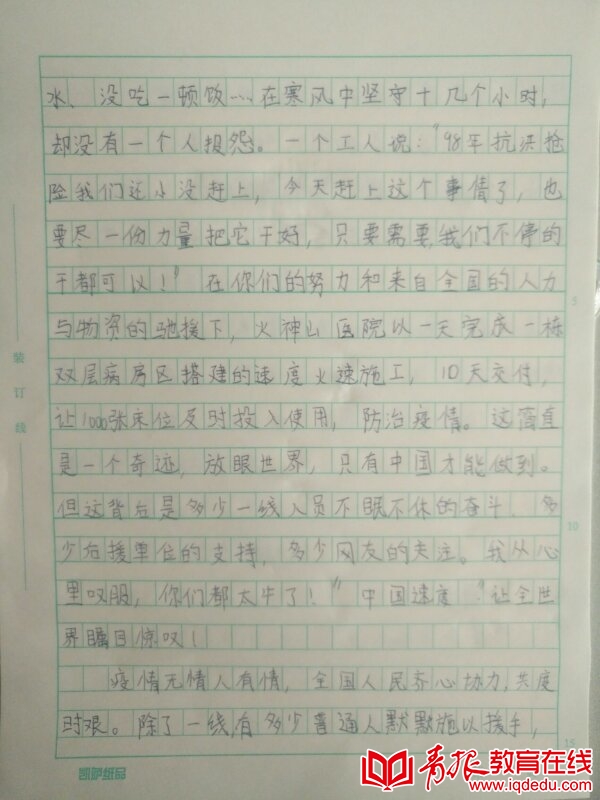 水、没吃一顿饭…在寒风中坚守十几个小时，
却没有一个人报怨。一个工人说："98年抗洪抢
险我们还小没赶上，今天赶上这个事情了，也
要尽一份力量把它干好，只要需要,我们不停的
干都可以！"在你们的努力和来自全国的人力
与物资的驰援下，火神山医院以一天完成一栋
双层病房区搭建的速度火速施工，10天交付，
让1000张床位及时投入使用，防治疫情。这简直
是一个奇迹，放眼世界，只有中国才能做到。
但这背后是多少一线人员不眠不休的奋斗、多
少后援单位的支持，多少网友的关注。我从心
里叹服，你们都太牛了！"中国速度"让全世
界瞩目惊叹！
疫情无情人有情，全国人民齐心协力,共度
时艰。除了一线,有多少普通人默默施以援手，
装订线
5
10
15
凯萨纸品
青报教育在线
www.iqdedu.com